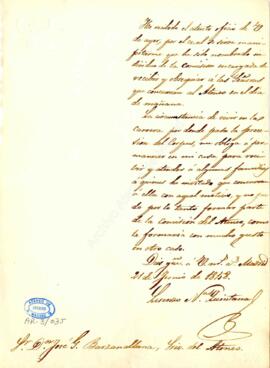 He recibido el atento oficio de V
de ayer, por el cual se sirve mani-
festarme que he sido nombrado in-
dividuo de la comision encargada de
recibir y obsequiar a las Señoras
que concurran al Ateneo en el dia
de mañana.
La circunstancia de vivir en las
carrera por donde pasa la proce-
sion del Corpus, me obliga a per-
manecer en mi casa para reci-
bir y atender a algunas familias
a quienes he invitado que concurran
a ella con aquel motivo, y no pue-
do por lo tanto formar parte
de la comision del Ateneo, como
la formaria con mucho gusto
en otro caso.
Dios gue. a V m. a. Madrid
21 de Junio de 1848.
Lorenzo N. Quintana
ATENEO DE
MADRID
AR-3/035
Sr. Dn. José G. Barzanallana, Srio. del Ateneo.